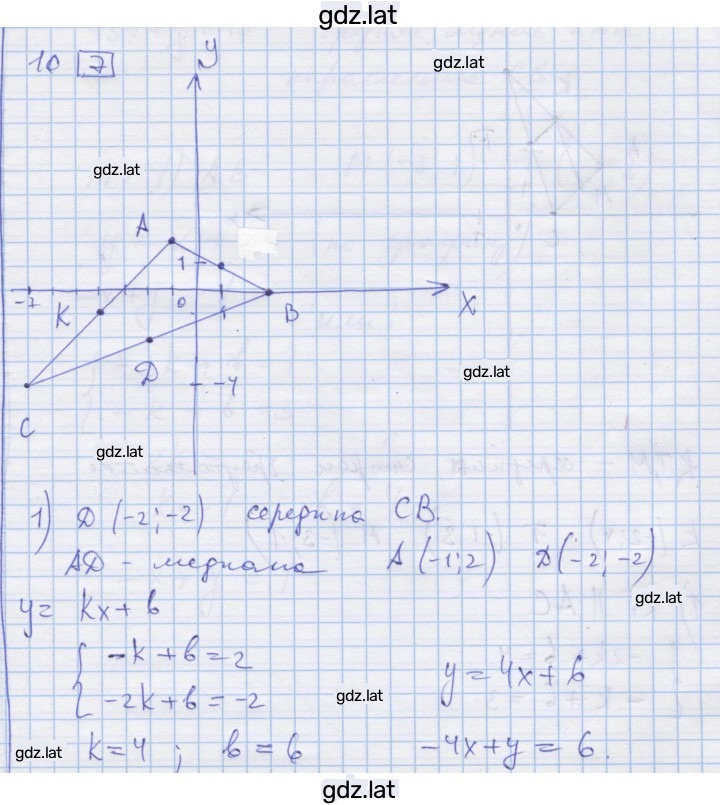 gdz.lat
10 7
y
gdz.lat
gdz.lat
A
1
-7
K
0
1
B
x
D
-4
gdz.lat
C
gdz.lat
1) D (-2; -2) середина CB.
AD - медиана A (-1; 2) D (-2; -2)
gdz.lat
y = kx + b
-k + b = 2
y = 4x + 6
-2k + b = -2
gdz.lat
k = 4 ; b = 6
-4x + y = 6.
gdz.lat
gdz.lat
gdz.lat